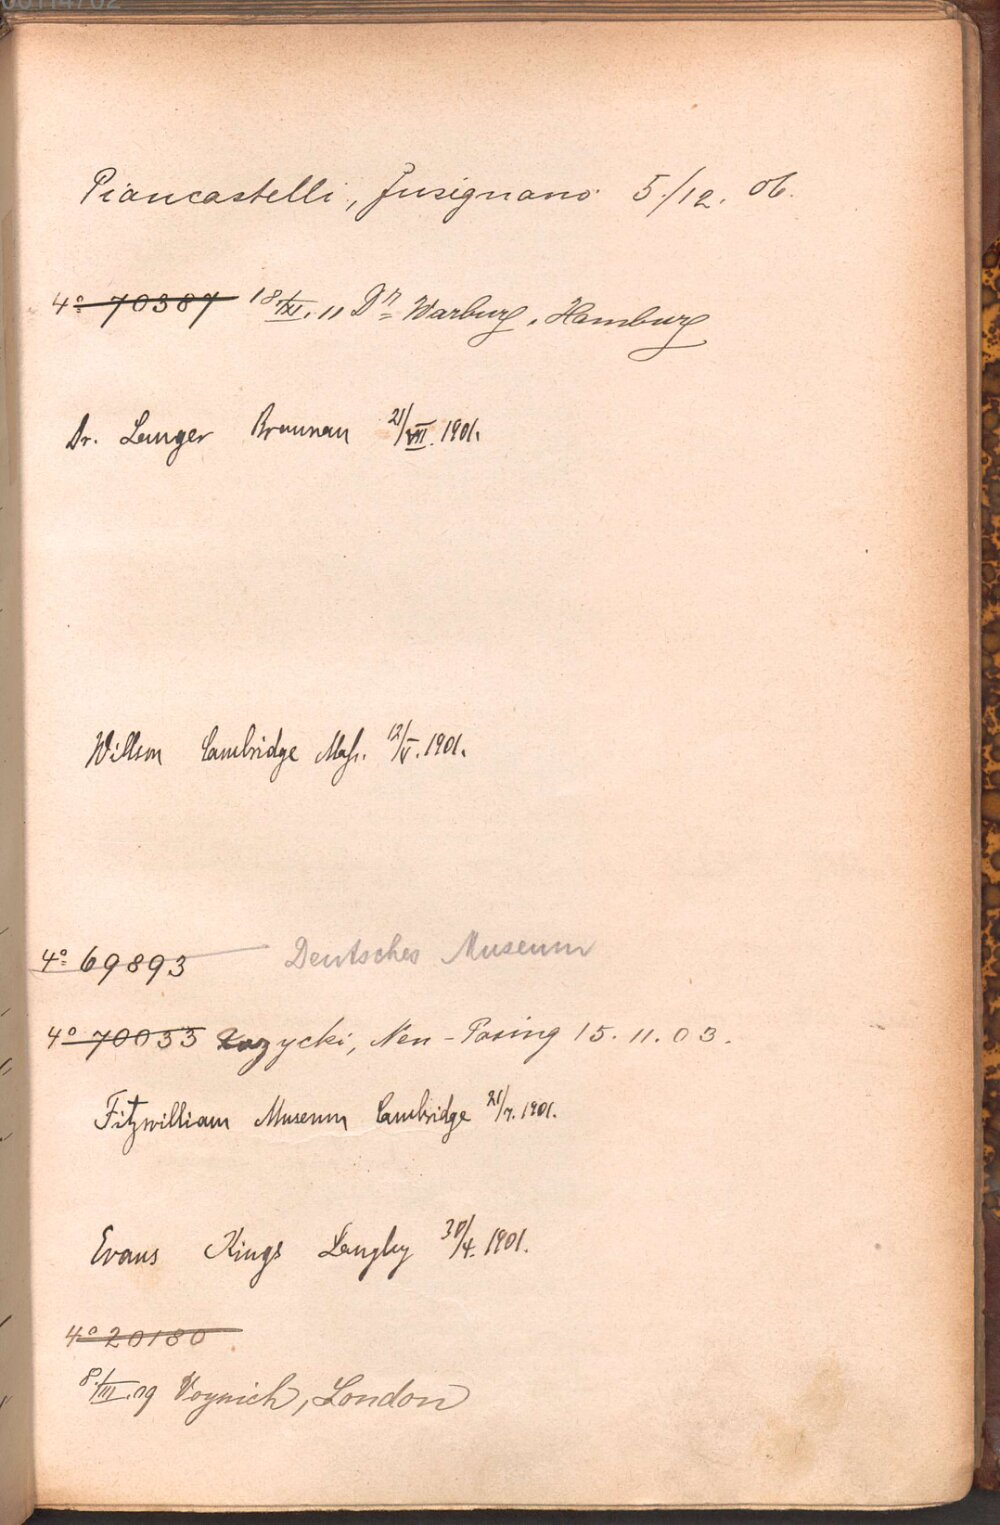 00114702
Piancastelli, Fusignano 5./12. 06.
4° 70387 18/XI. 11 Dr Warburg, Hamburg
Dr. Langer Braunau 21/VIII. 1901.
Willson Cambridge Mass. 12/V. 1901.
4° 69893 Deutsches Museum
4° 70033 ycki, Neu-Pasing 15. 11. 03.
Fitzwilliam Museum Cambridge 21/7. 1901.
Evans Kings Langley 30/4. 1901.
4° 20180
8/III. 09 Voynich, London